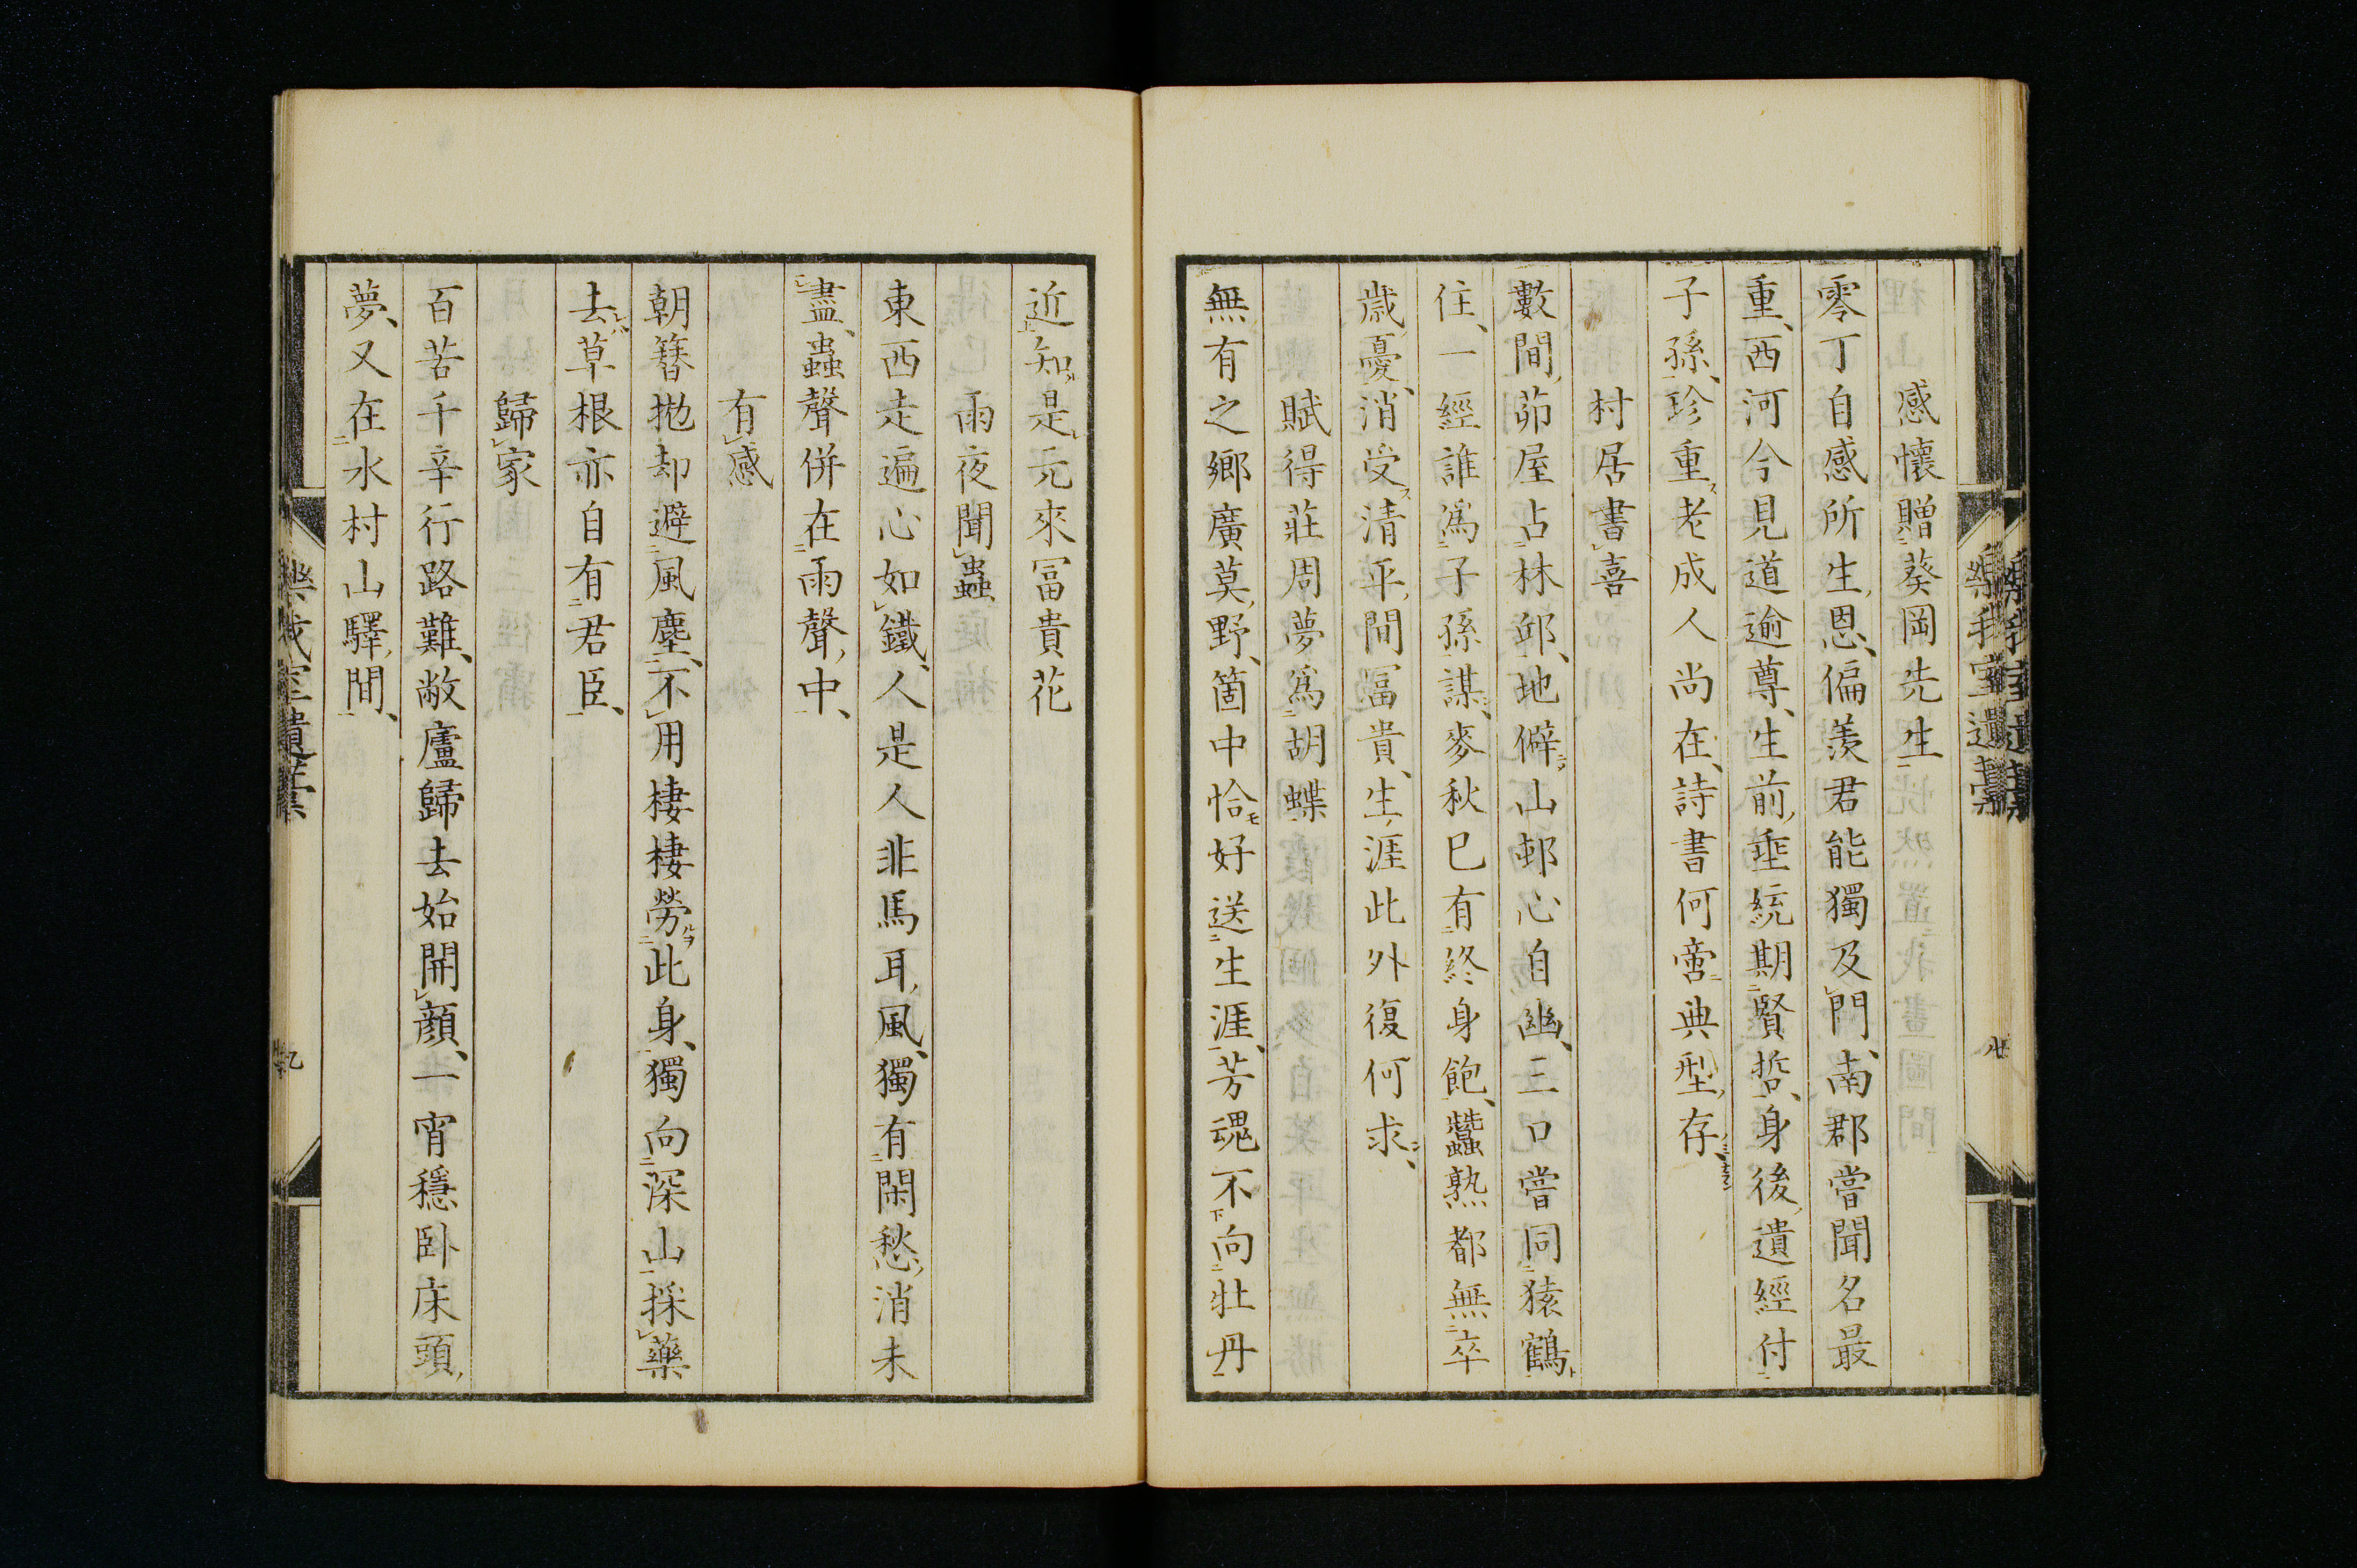 感懷贈葵岡先生
零丁自感所生恩、偏羨君能獨及門、南郡嘗聞名最
重、西河今見道逾尊、生前垂統期賢哲、身後遺經付
子孫、珍重老成人尚在、詩書何啻典型存、
村居書喜
數間茆屋占林邱、地僻山邨心自幽、三口嘗同猿鶴
住、一經誰爲子孫謀、麥秋已有終身飽、蠶熟都無卒
歲憂、消受清平間冨貴、生涯此外復何求、
賦得莊周夢爲胡蝶
無有之鄉廣莫野、箇中恰好送生涯、芳魂不向牡丹
近知是元來冨貴花
雨夜聞蟲
東西走遍心如鐵、人是人非馬耳風、獨有閑愁消未
盡、蟲聲併在雨聲中、
有感
朝簪拋却避風塵、不用棲棲勞此身、獨向深山採藥
去草根亦自有君臣、
歸家
百苦千辛行路難、敝廬歸去始開顔、一宵穩臥床頭
夢、又在水村山驛間、